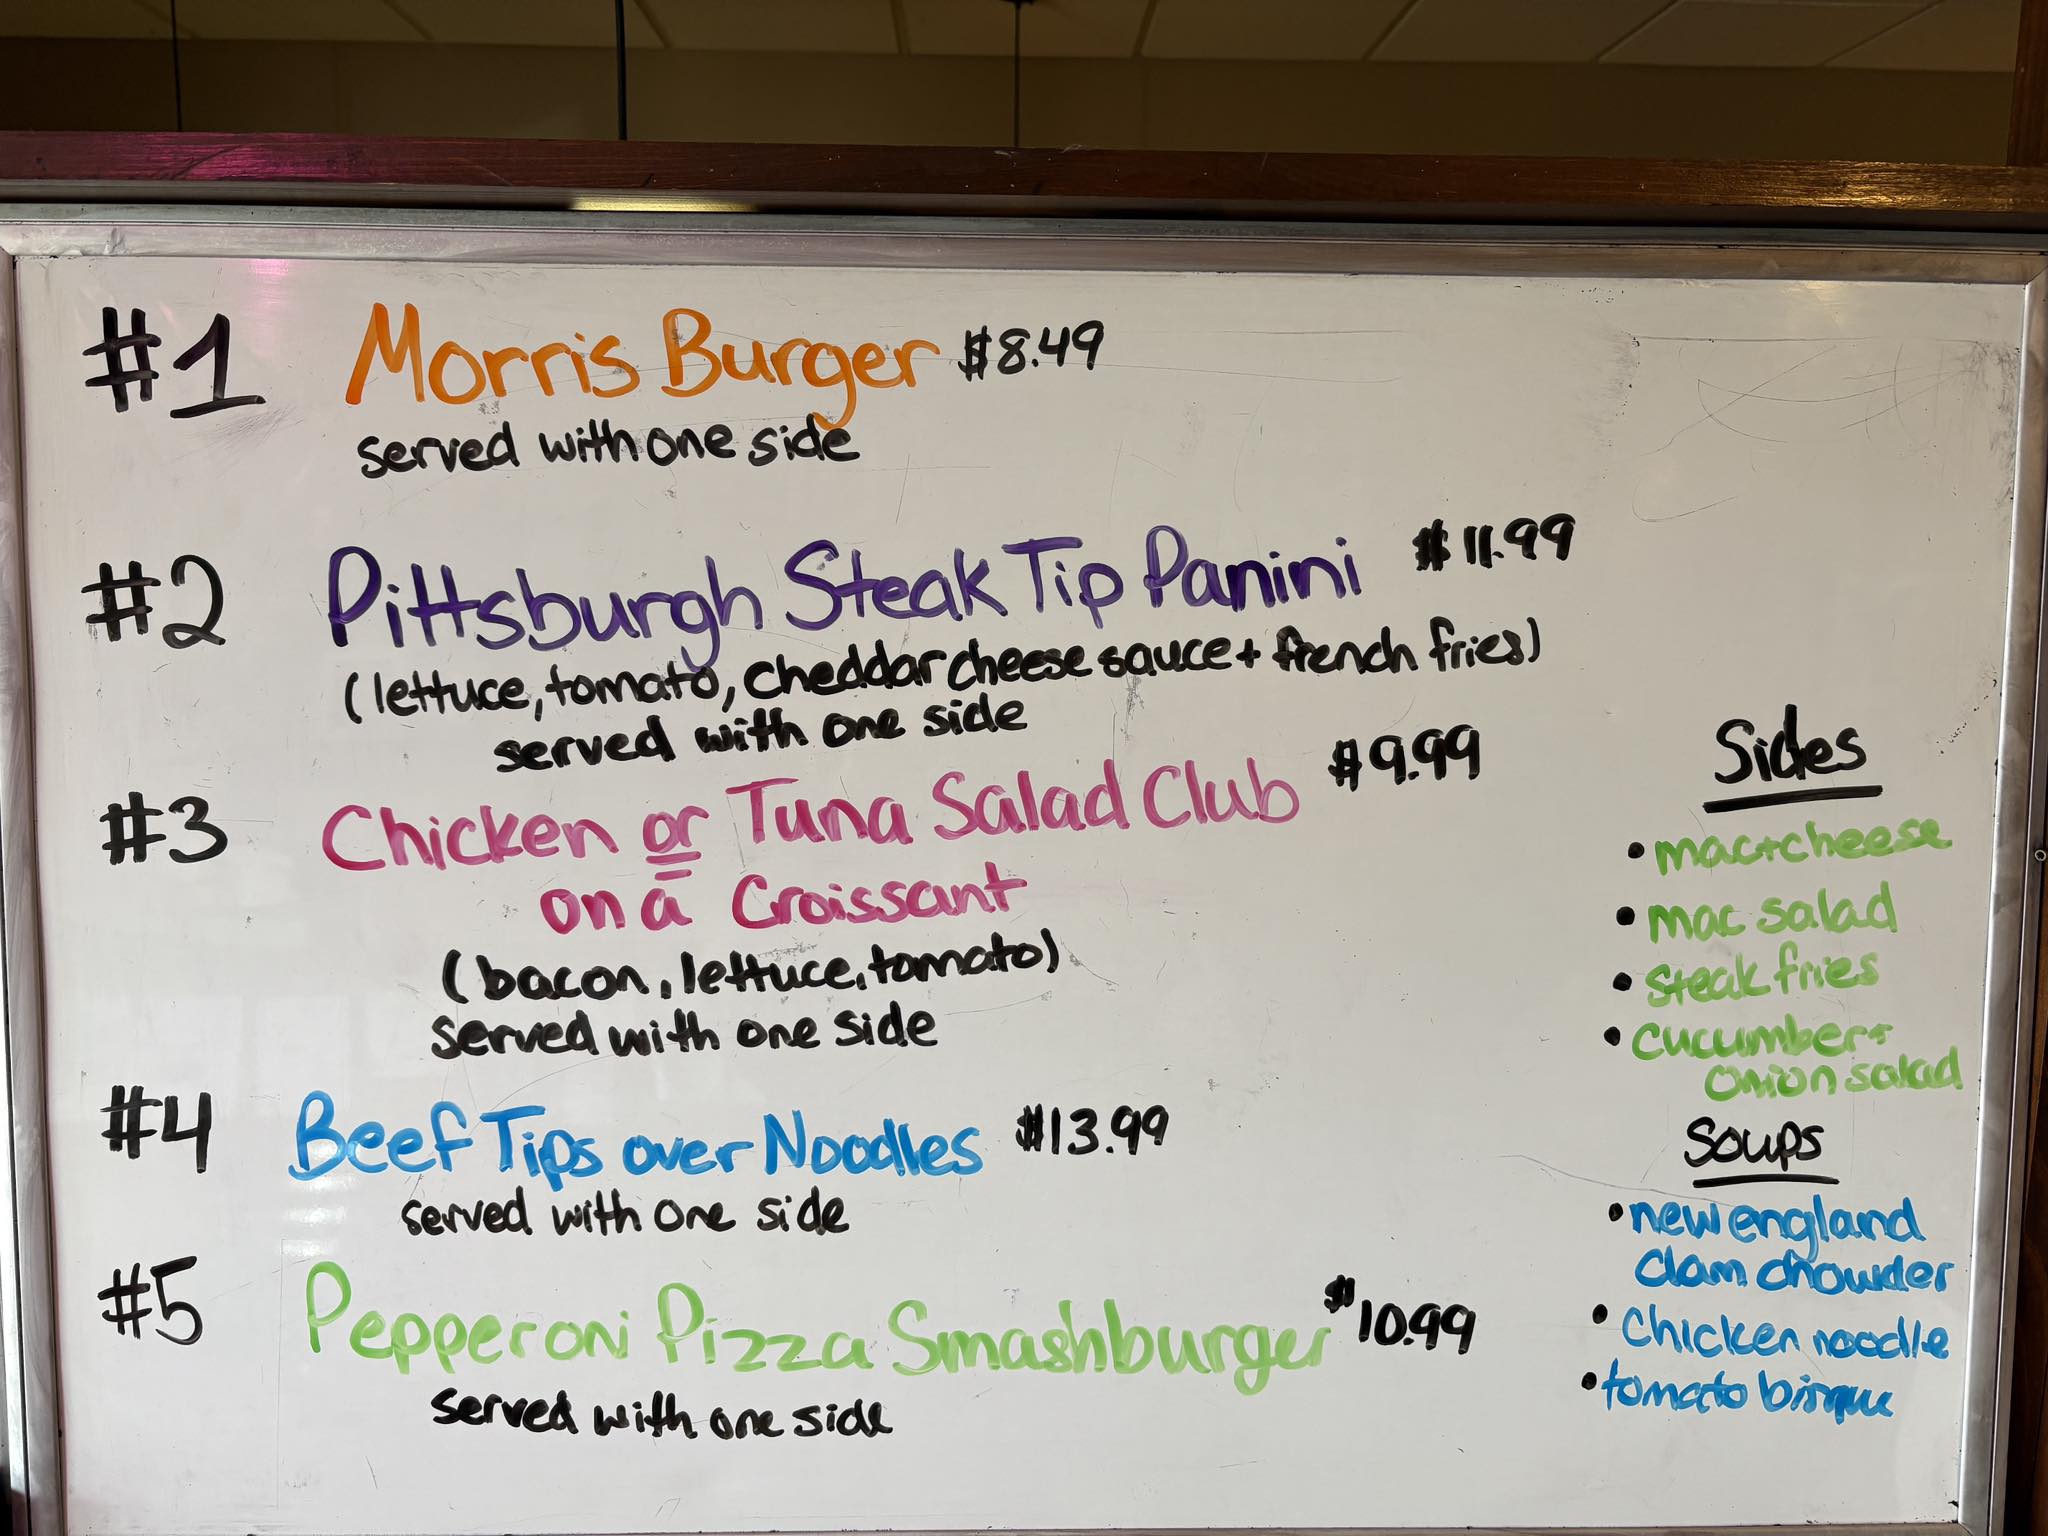 #1 Morris Burger $8.49
served with one side
#2 Pittsburgh Steak Tip Panini $11.99
(lettuce, tomato, cheddar cheese sauce + french fries)
served with one side
#3 Chicken or Tuna Salad Club $9.99
on a Croissant
(bacon, lettuce, tomato)
served with one side
#4 Beef Tips over Noodles $13.99
served with one side
#5 Pepperoni Pizza Smashburger $10.99
served with one side
Sides
• mac+cheese
• mac salad
• steak fries
• cucumber+
onion salad
Soups
• new england
clam chowder
• Chicken noodle
• tomato bisque